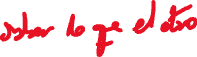 saber lo que el otro